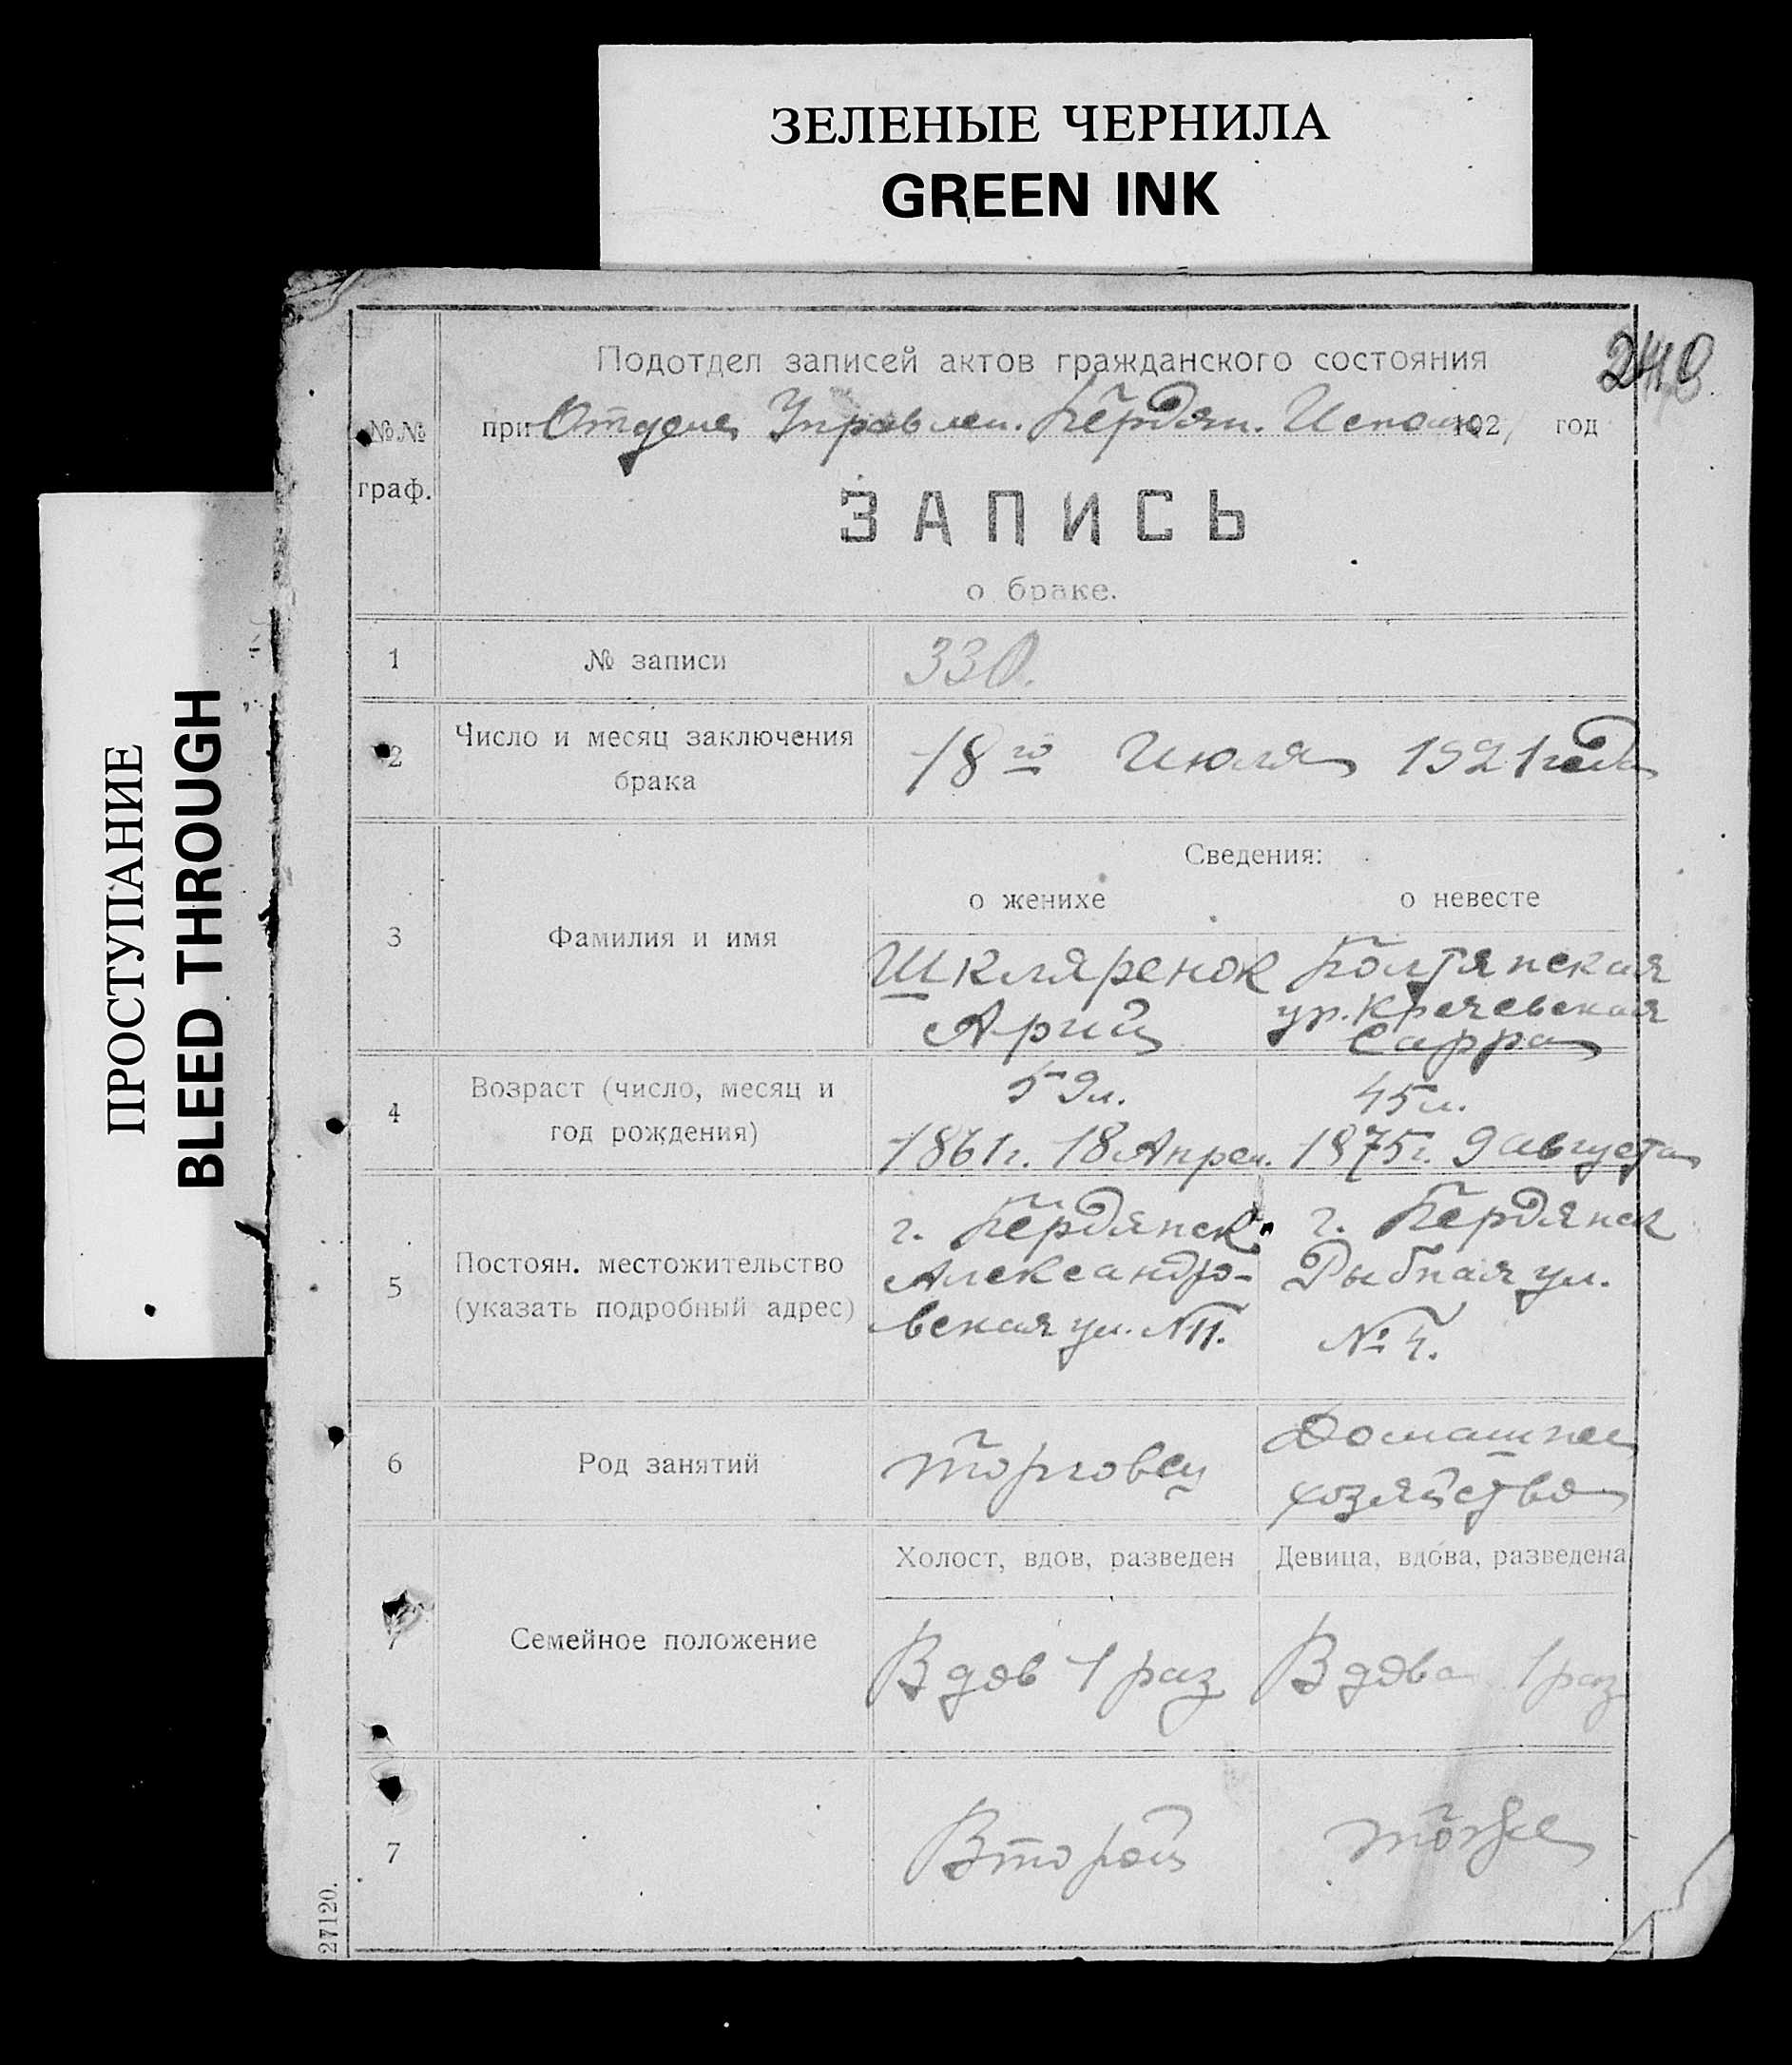 ЗЕЛЕНЫЕ ЧЕРНИЛА
GREEN INK
ПРОСТУПАНИЕ
BLEED THROUGH
Подотдел записей актов гражданского состояния
при Отделе Управлен. Бердян. Исполк. 1921 год
№№
граф.
ЗАПИСЬ
о браке.
1 № записи 330.
2 Число и месяц заключения
брака
18го Июля 1921 года
Сведения:
о женихе о невесте
3 Фамилия и имя
Шкляренок Болтянская
ур. Кречевская
Арий Сарра
4 Возраст (число, месяц и
год рождения)
59 л. 45 л.
1861 г. 18 Апрел. 1875 г. 9 августа
5 Постоян. местожительство
(указать подробный адрес)
г. Бердянск г. Бердянск
Александро- Рыбная ул.
вская ул. №11. № 4.
6 Род занятий
Торговец Домашнее
хозяйство
Холост, вдов, разведен Девица, вдова, разведена
7 Семейное положение
Вдов 1 раз Вдова 1 раз
7 Второй тоже
27120.